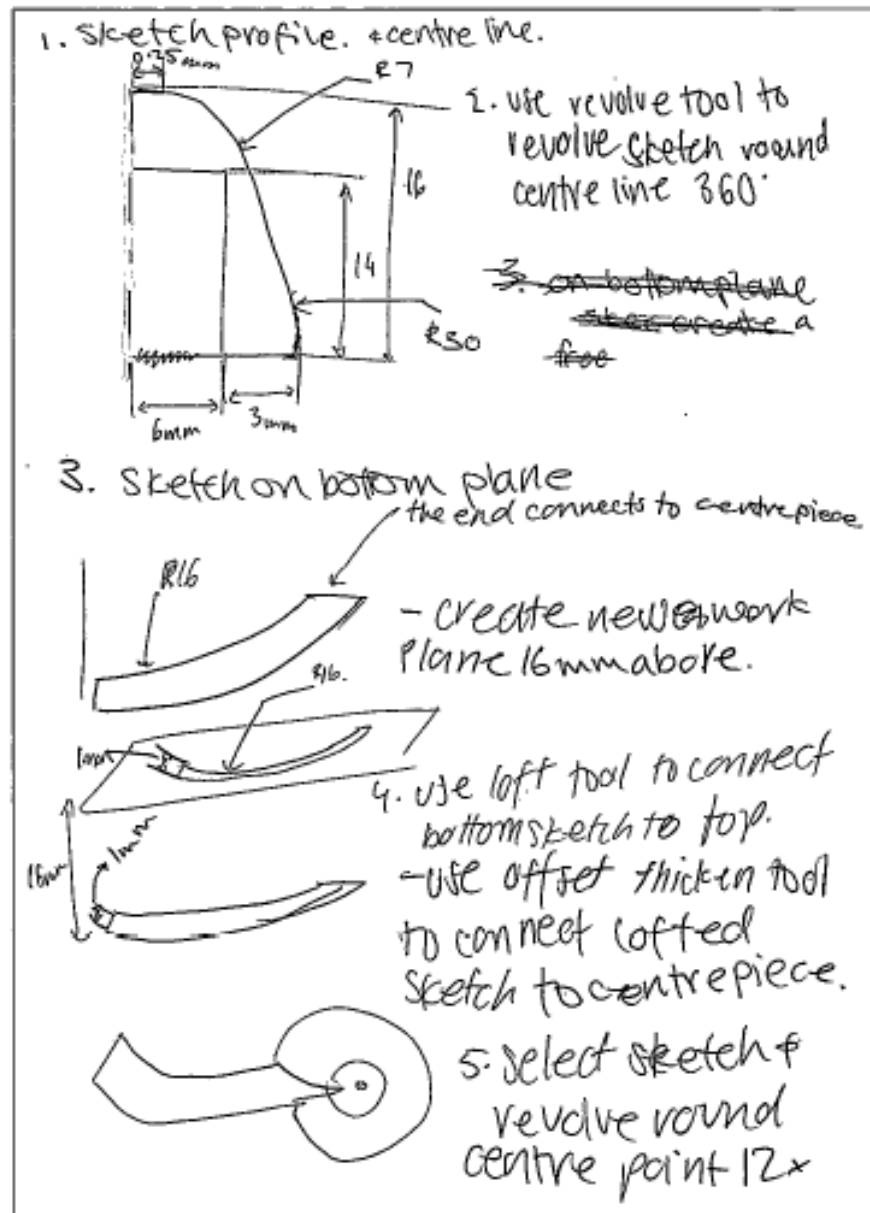 1. Sketch profile. + centre line.
0.25mm
R7
2. use revolve tool to
revolve sketch round
centre line 360°
16
14
3. on bottom plane
create a
free
R50
6mm
3mm
3. Sketch on bottom plane
the end connects to centrepiece
R16
- create new work
plane 16mm above.
R16.
1mm
4. use loft tool to connect
bottom sketch to top.
16mm
1mm
- use offset thicken tool
to connect lofted
sketch to centrepiece.
5. Select sketch &
revolve round
centre point 12x